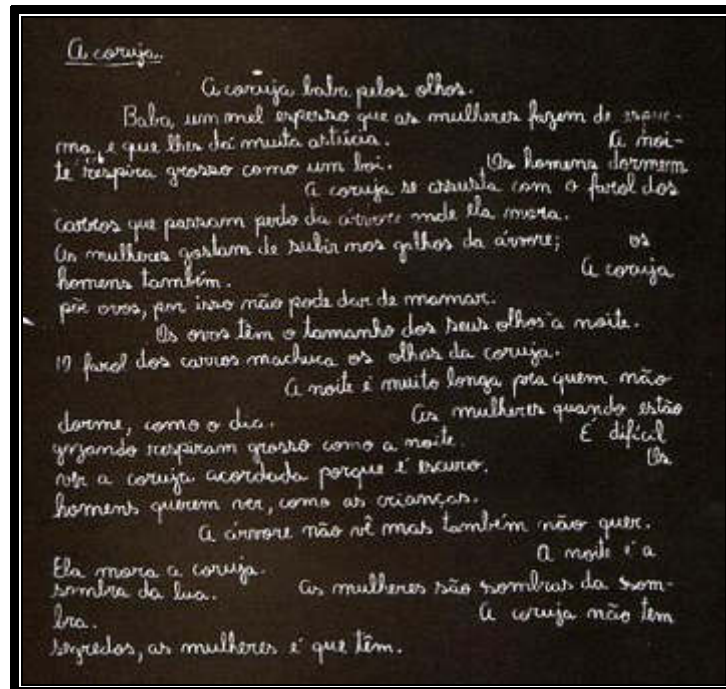 A coruja.
A coruja baba pelos olhos.
Baba um mel espesso que as mulheres fazem de esper-
ma, e que lhes dá muita astúcia. A noi-
te respira grosso como um boi. Os homens dormem
A coruja se assusta com o farol dos
carros que passam perto da árvore onde ela mora.
As mulheres gostam de subir nos galhos da árvore; os
homens também. A coruja
põe ovos, por isso não pode dar de mamar.
Os ovos têm o tamanho dos seus olhos à noite.
O farol dos carros machuca os olhos da coruja.
A noite é muito longa pra quem não
dorme, como o dia. As mulheres quando estão
gozando respiram grosso como a noite. É difícil
ver a coruja acordada porque é escuro. Os
homens querem ver, como as crianças.
A árvore não vê mas também não quer.
Ela mora a coruja. A noite é a
sombra da lua. As mulheres são sombras da som-
bra. A coruja não tem
segredos, as mulheres é que têm.